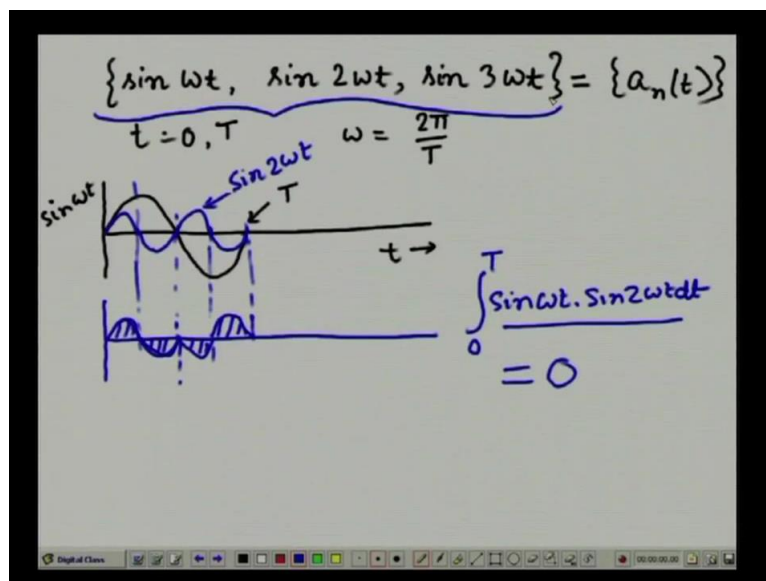 {sin ωt, sin 2ωt, sin 3ωt} = {aₙ(t)}
t = 0, T ω = 2π/T
sin 2ωt
sin ωt
T
t →
∫₀ᵀ sin ωt . sin 2ωt dt
= 0
Digital Class
00:00:00.00